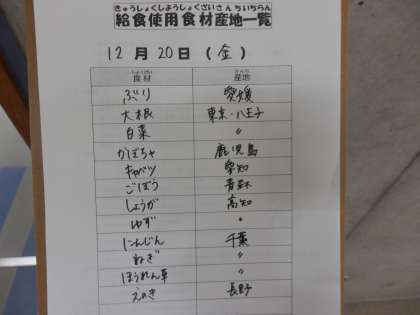 きゅうしょくしようしょくざいさんちいちらん
給食使用食材産地一覧
12月20日(金)
しょくざい さんち
食材 産地
ぶり 愛媛
大根 東京・八王子
白菜 〃
かぼちゃ 鹿児島
キャベツ 愛知
ごぼう 青森
しょうが 高知
ゆず 〃
にんじん 千葉
ねぎ 〃
ほうれん草 〃
えのき 長野